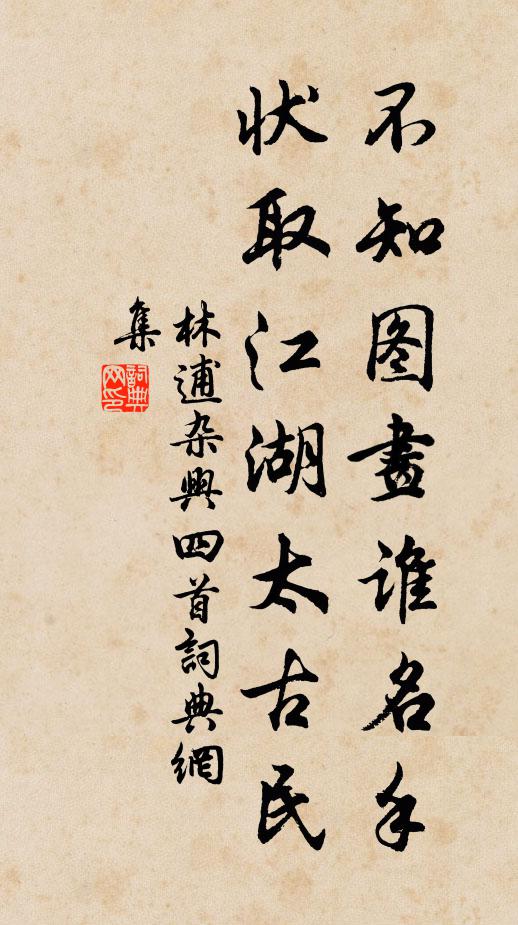 不知图畫谁名手
状取江湖太古民
林逋杂興四首詞典網
集
詞典網印